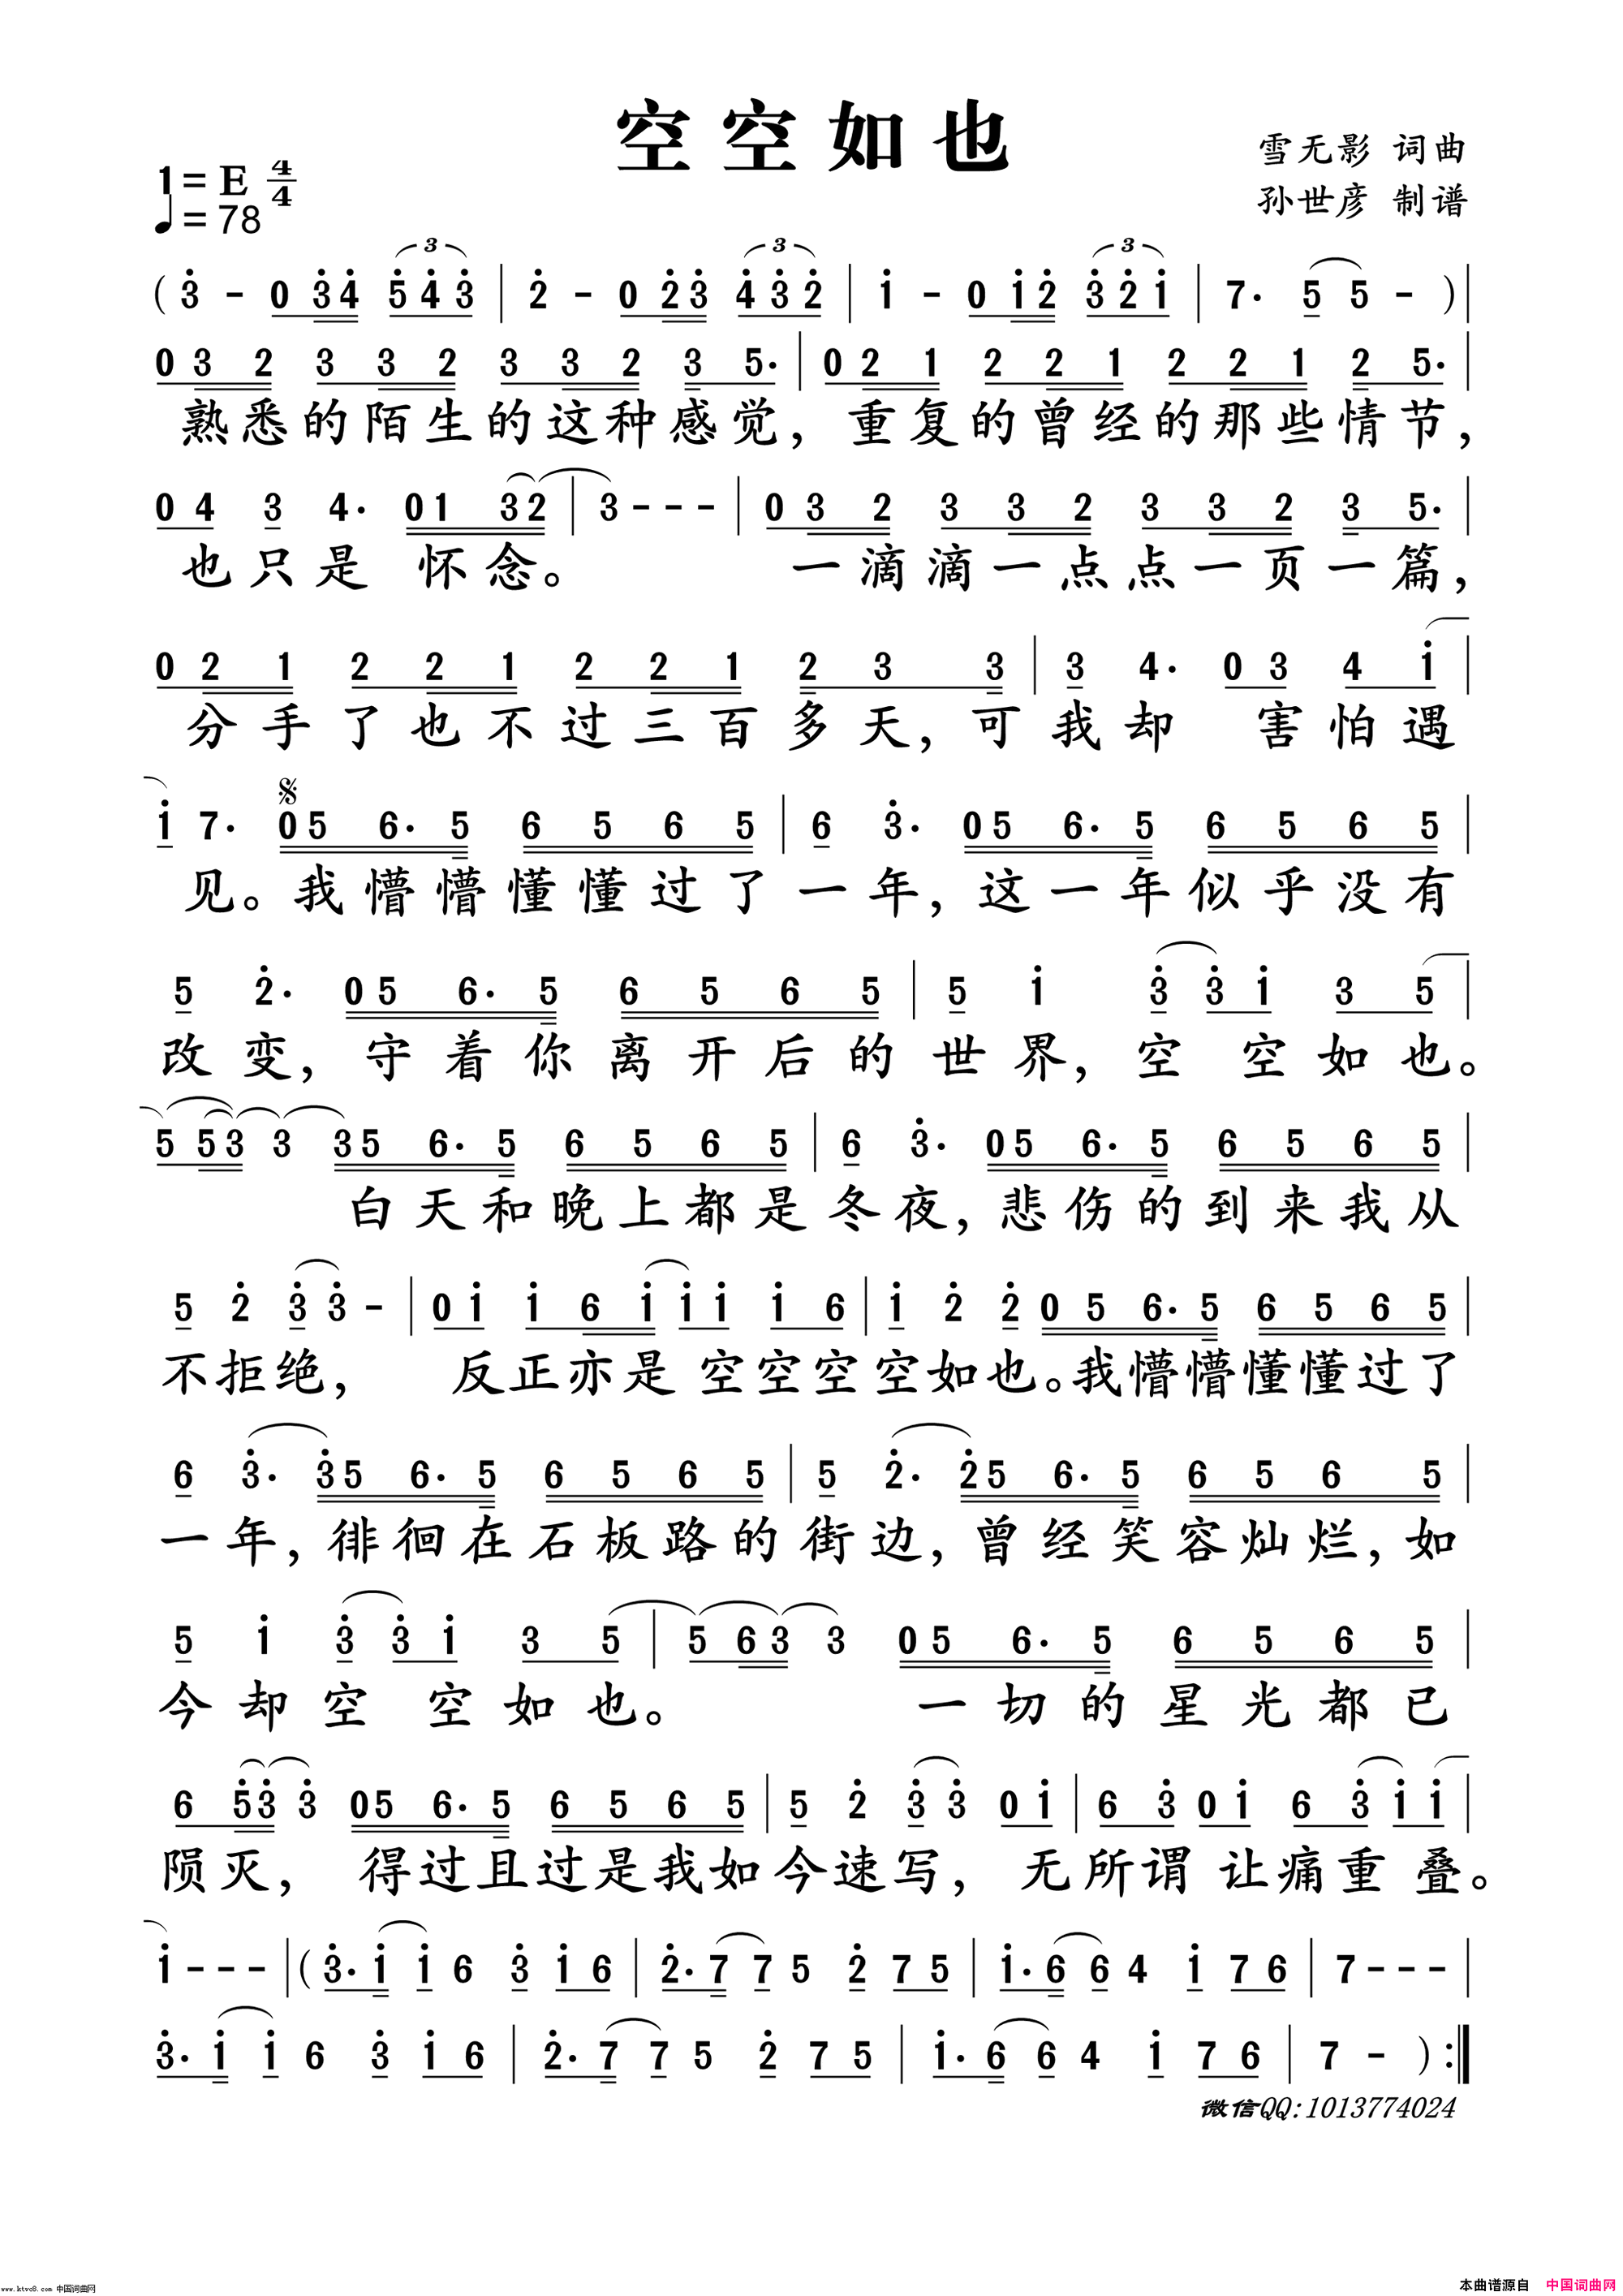 空空如也
雪无影 词曲
孙世彦 制谱
1=E 4/4
♩=78
(3̇ - 0 3̇4̇ 5̇4̇3̇ | 2̇ - 0 2̇3̇ 4̇3̇2̇ | 1̇ - 0 1̇2̇ 3̇2̇1̇ | 7· 5 5 - )|
0 3 2 3 3 2 3 3 2 3 5· | 0 2 1 2 2 1 2 2 1 2 5· |
熟悉的陌生的这种感觉，重复的曾经的那些情节，
0 4 3 4· 0 1 3 2 | 3 - - - | 0 3 2 3 3 2 3 3 2 3 5· |
也只是怀念。 一滴滴一点点一页一篇，
0 2 1 2 2 1 2 2 1 2 3 3 | 3 4· 0 3 4 1̇ |
分手了也不过三百多天，可我却 害怕遇
1̇ 7· 0 5 6· 5 6 5 6 5 | 6 3̇· 0 5 6· 5 6 5 6 5 |
见。我懵懵懂懂过了一年，这一年似乎没有
5 2̇· 0 5 6· 5 6 5 6 5 | 5 1̇ 3̇ 3̇ 1̇ 3 5 |
改变，守着你离开后的世界，空 空如也。
5 5 3 3 3 5 6· 5 6 5 6 5 | 6 3̇· 0 5 6· 5 6 5 6 5 |
白天和晚上都是冬夜，悲伤的到来我从
5 2̇ 3̇ 3̇ - | 0 1̇ 1̇ 6 1̇ 1̇ 1̇ 1̇ 6 | 1̇ 2̇ 2̇ 0 5 6· 5 6 5 6 5 |
不拒绝， 反正亦是空空空空如也。我懵懵懂懂过了
6 3̇· 3̇ 5 6· 5 6 5 6 5 | 5 2̇· 2̇ 5 6· 5 6 5 6 5 |
一年，徘徊在石板路的街边，曾经笑容灿烂，如
5 1̇ 3̇ 3̇ 1̇ 3 5 | 5 6 3 3 0 5 6· 5 6 5 6 5 |
今却空 空如也。 一切的星光都已
6 5̇ 3̇ 3̇ 0 5 6· 5 6 5 6 5 | 5 2̇ 3̇ 3̇ 0 1̇ | 6 3̇ 0 1̇ 6 3̇ 1̇ 1̇ |
陨灭， 得过且过是我如今速写， 无所谓 让痛重叠。
1̇ - - - |(3̇· 1̇ 1̇ 6 3̇ 1̇ 6 | 2̇· 7 7 5 2̇ 7 5 | 1̇· 6 6 4 1̇ 7 6 | 7 - - - |
3̇· 1̇ 1̇ 6 3̇ 1̇ 6 | 2̇· 7 7 5 2̇ 7 5 | 1̇· 6 6 4 1̇ 7 6 | 7 - ):‖
微信QQ:1013774024
www.ktvc8.com 中国词曲网
本曲谱源自 中国词曲网